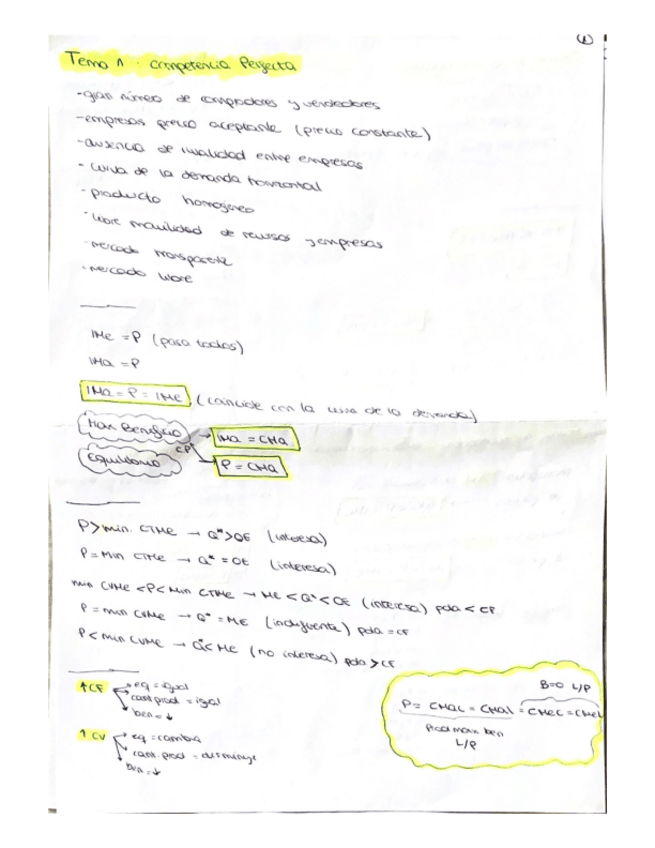 1
Tema 1 · Competencia Perfecta
- gran número de compradores y vendedores
- empresas precio aceptante (precio constante)
- ausencia de rivalidad entre empresas
- curva de la demanda horizontal
- producto homogéneo
- libre movilidad de recursos y empresas
- mercado transparente
- mercado libre
IMe = P (para todos)
IMa = P
IMa = P = IMe (coincide con la curva de la demanda)
Max Beneficio → IMa = CMa
CP
Equilibrio → P = CMa
P > min. CTMe → Q* > OE (interesa)
P = Min CTMe → Q* = OE (interesa)
min CVMe < P < Min CTMe → ME < Q* < OE (interesa) pda < CF
P = min CVMe → Q* = ME (indiferente) pda = CF
P < min CVMe → Q* < ME (no interesa) pda > CF
↑CF → eq = igual
→ cant prod = igual
→ ben = ↓
↑CV → eq = cambia
→ cant. prod = disminuye
→ ben = ↓
B=0 L/P
P = CMaC = CMaL = CMeC = CMeL
Prod max ben
L/P